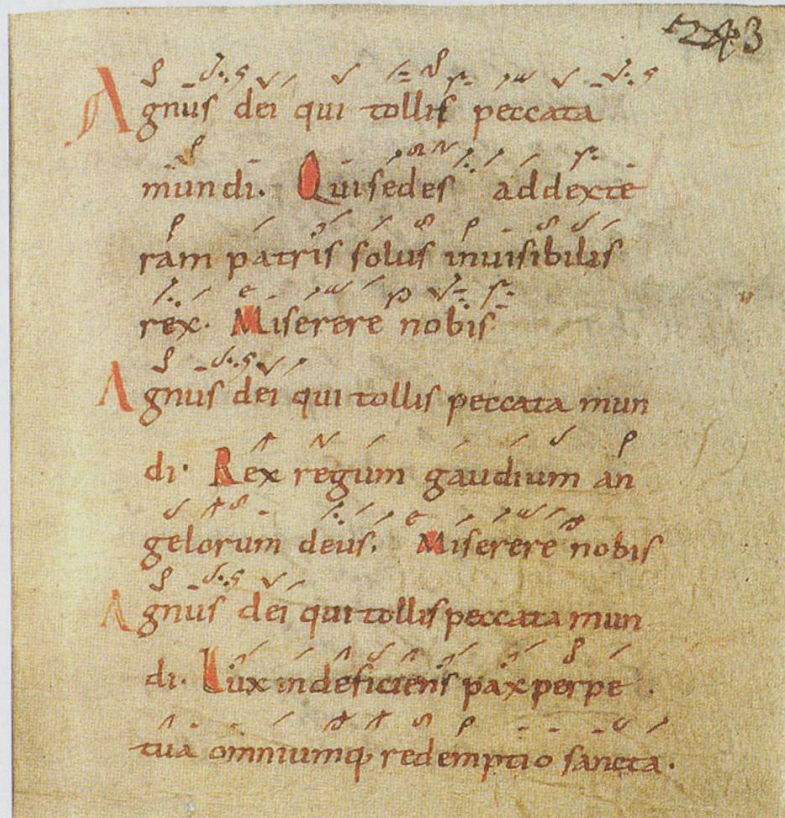 243
Agnus dei qui tollis peccata
mundi. Qui sedes addexte
ram patris solus inuisibilis
rex. Miserere nobis
Agnus dei qui tollis peccata mun
di. Rex regum gaudium an
gelorum deus. Miserere nobis
Agnus dei qui tollis peccata mun
di. Lux indeficiens pax perpe
tua omniumq; redemptio sancta.